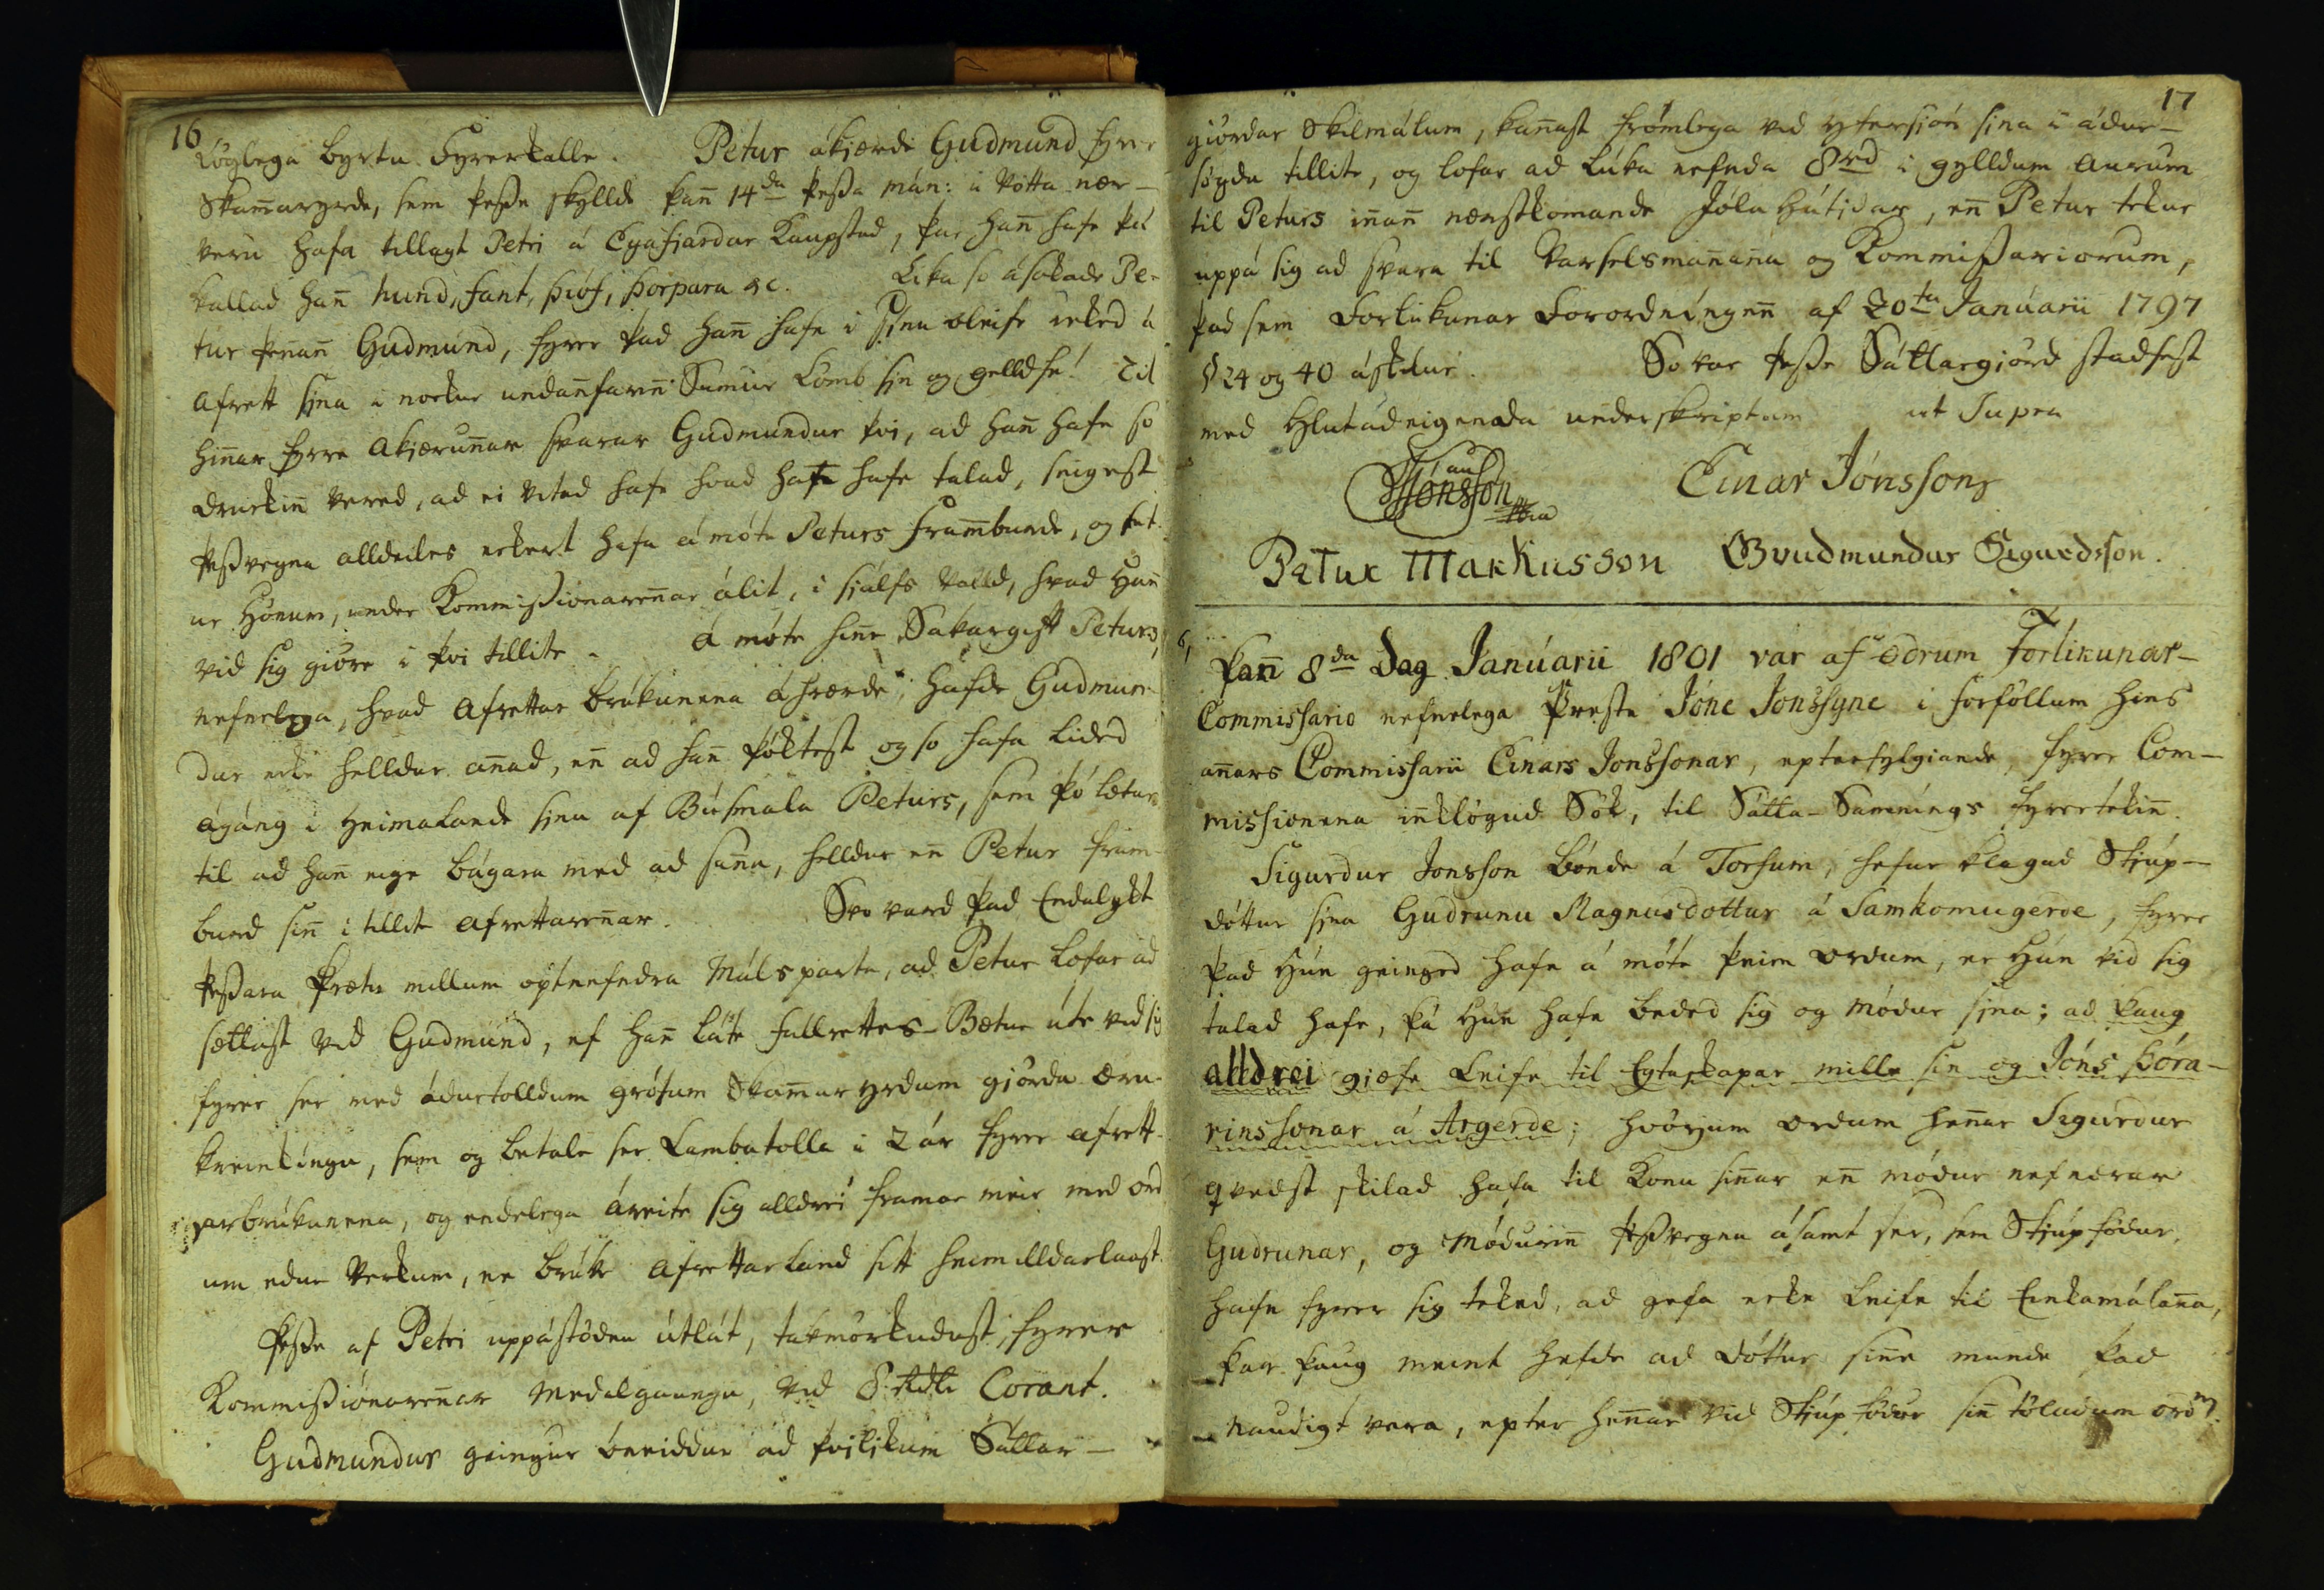 16
löglega byrta Fyrerkalle. Petur ákjærde Gudmund fyrer
Skam̄aryrde, sem þesse skyllde þan̄ 14da þessa mán: i Votta nær-
veru hafa tillagt Petri á Eyafjardar Kaupstad, þar han̄ hafe þá
kallad han̄ hund, fant, þiof, þorpara &c. Lika so ásakade Pe-
tur þen̄an̄ Gudmund, fyrer þad han̄ hafe i sinu oleife reked á
afrett sina i nockur undan̄farin̄ Sumur Lömb sin og gelldfé! Til
hin̄ar fyrre akiærun̄ar svarar Gudmundur þvi, ad han̄ hafe so
druckin̄ vered, ad ei vitad hafe hvad hafe talad, seigest
þessvegna alldeiles eckert hafa á móte Peturs Frambunde, og sat
ur hönum, under Kommissionaren̄ar álit, i siálfs valld, hvad Han̄
vid sig giöre i þvi tillite. á móte hin̄e Sakargift Peturs,
nefnelega, hvad afrettar brúkunena áhrærde, hafde Gudmun-
dur ecke helldur an̄ad, en̄ ad han̄ þöktest og so hafa lided
ágáng i Heimalande sinu af Búsmala Peturs, sem þó lætur
til ad han̄ eige bágara med ad san̄a, helldur en̄ Petur fram-
burd sin̄ i tillite afrettaren̄ar. Svo vard þad Endalykt
þessara þrætu millum optnefndra Málsparta, ad Petur lofar ad
sættast vid Gudmund, ef han̄ láte fullrettes-Bætur úte vid sig
fyrer sér med ádurtölldum grófum Skam̄aryrdum giörda æru-
kreinkingu, sem og betale ser Lambatolla i 2 ár fyrer afrett-
arbrúkunena, og endelega áreite sig alldrei framar meir med ord-
um edur Verkum, ne brúke afrettarland sitt heimilldarlaust.
þesse af Petri uppástöden útlát, takmörkudust, fyrer
Kommissiónaren̄ar Medalgaungu, vid 8 Rdle Corant.
Gudmundur geingur óneiddur ad þvilikum Sáttar-
17
giördar Skilmálum, kan̄ast frómlega vid yfersión sina i ádur-
sögdu tillite, og lofar ad lúka nefnda 8rd i gylldum aurum
til Peturs in̄an̄ næstkomande Jóla hátidar, en̄ Petur tekur
uppá sig ad svara til Varselsman̄an̄a og Kommissariorum,
þad sem Forlikunar Forordningen̄ af 20ta Januarii 1797
§ 24 og 40 áskilur. So var þesse Sáttargiörd stadfest
med Hlutadeigenda underskriptum ut Supra
JJónsson Einar Jónsson
Petur Markusson Gvudmundur Sigurdsson.
6, þan̄ 8da Dag Januarii 1801 var af ödrum Forlikunar-
Commissario nefnelega Preste Jóne Jonssyne i forföllum hins
an̄ars Commissarii Einars Jonssonar, epterfylgiande, fyrer Com-
missionena in̄klögud Sök, til Sátta-Samnings fyrertekin̄.
Sigurdur Jonsson bónde á Torfum, hefur klagad Stjúp-
dóttur sina Gudrunu Magnusdottur á Samkomugerde, fyrer
þad Hún geinged hafe á móte þeim ordum, er Hún vid sig
talad hafe, þá Hún hafe beded sig og módur sina; ad þaug
alldrei giæfe Leife til Egtaskapar mille sin og Jóns Þóra-
rinssonar á Argerde; hvörjum ordum hen̄ar Sigurdur
qvedst skilad hafa til Konu sin̄ar en̄ módur nefndrar
Gudrunar, og Módurin̄ þessvegna ásamt ser, sem Stjúpfödur,
hafe fyrer sig teked, ad gefa ecke Leife til Einkamálan̄a,
þar þaug meint hefde ad dóttur sin̄e munde þad
naudigt vera, epter hen̄ar vid Stjúpfödur sin̄ töludum ordum